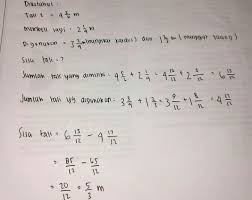 Diketahui :
Tali 1 = 4 5/6 m
Membeli lagi = 2 1/4 m
Digunakan = 3 3/4 m (mengikat kardus) dan 1 2/3 m (mengikat
Sisa tali = ?
Jumlah tali yang dimiliki = 4 5/6 + 2 1/4 = 4 10/12 + 2 3/12 = 6 13/12
Jumlah tali yg digunakan = 3 3/4 + 1 2/3 = 3 9/12 + 1 8/12 = 4 17/12
Sisa tali = 6 13/12 - 4 17/12
= 85/12 - 65/12
= 20/12 = 5/3 m